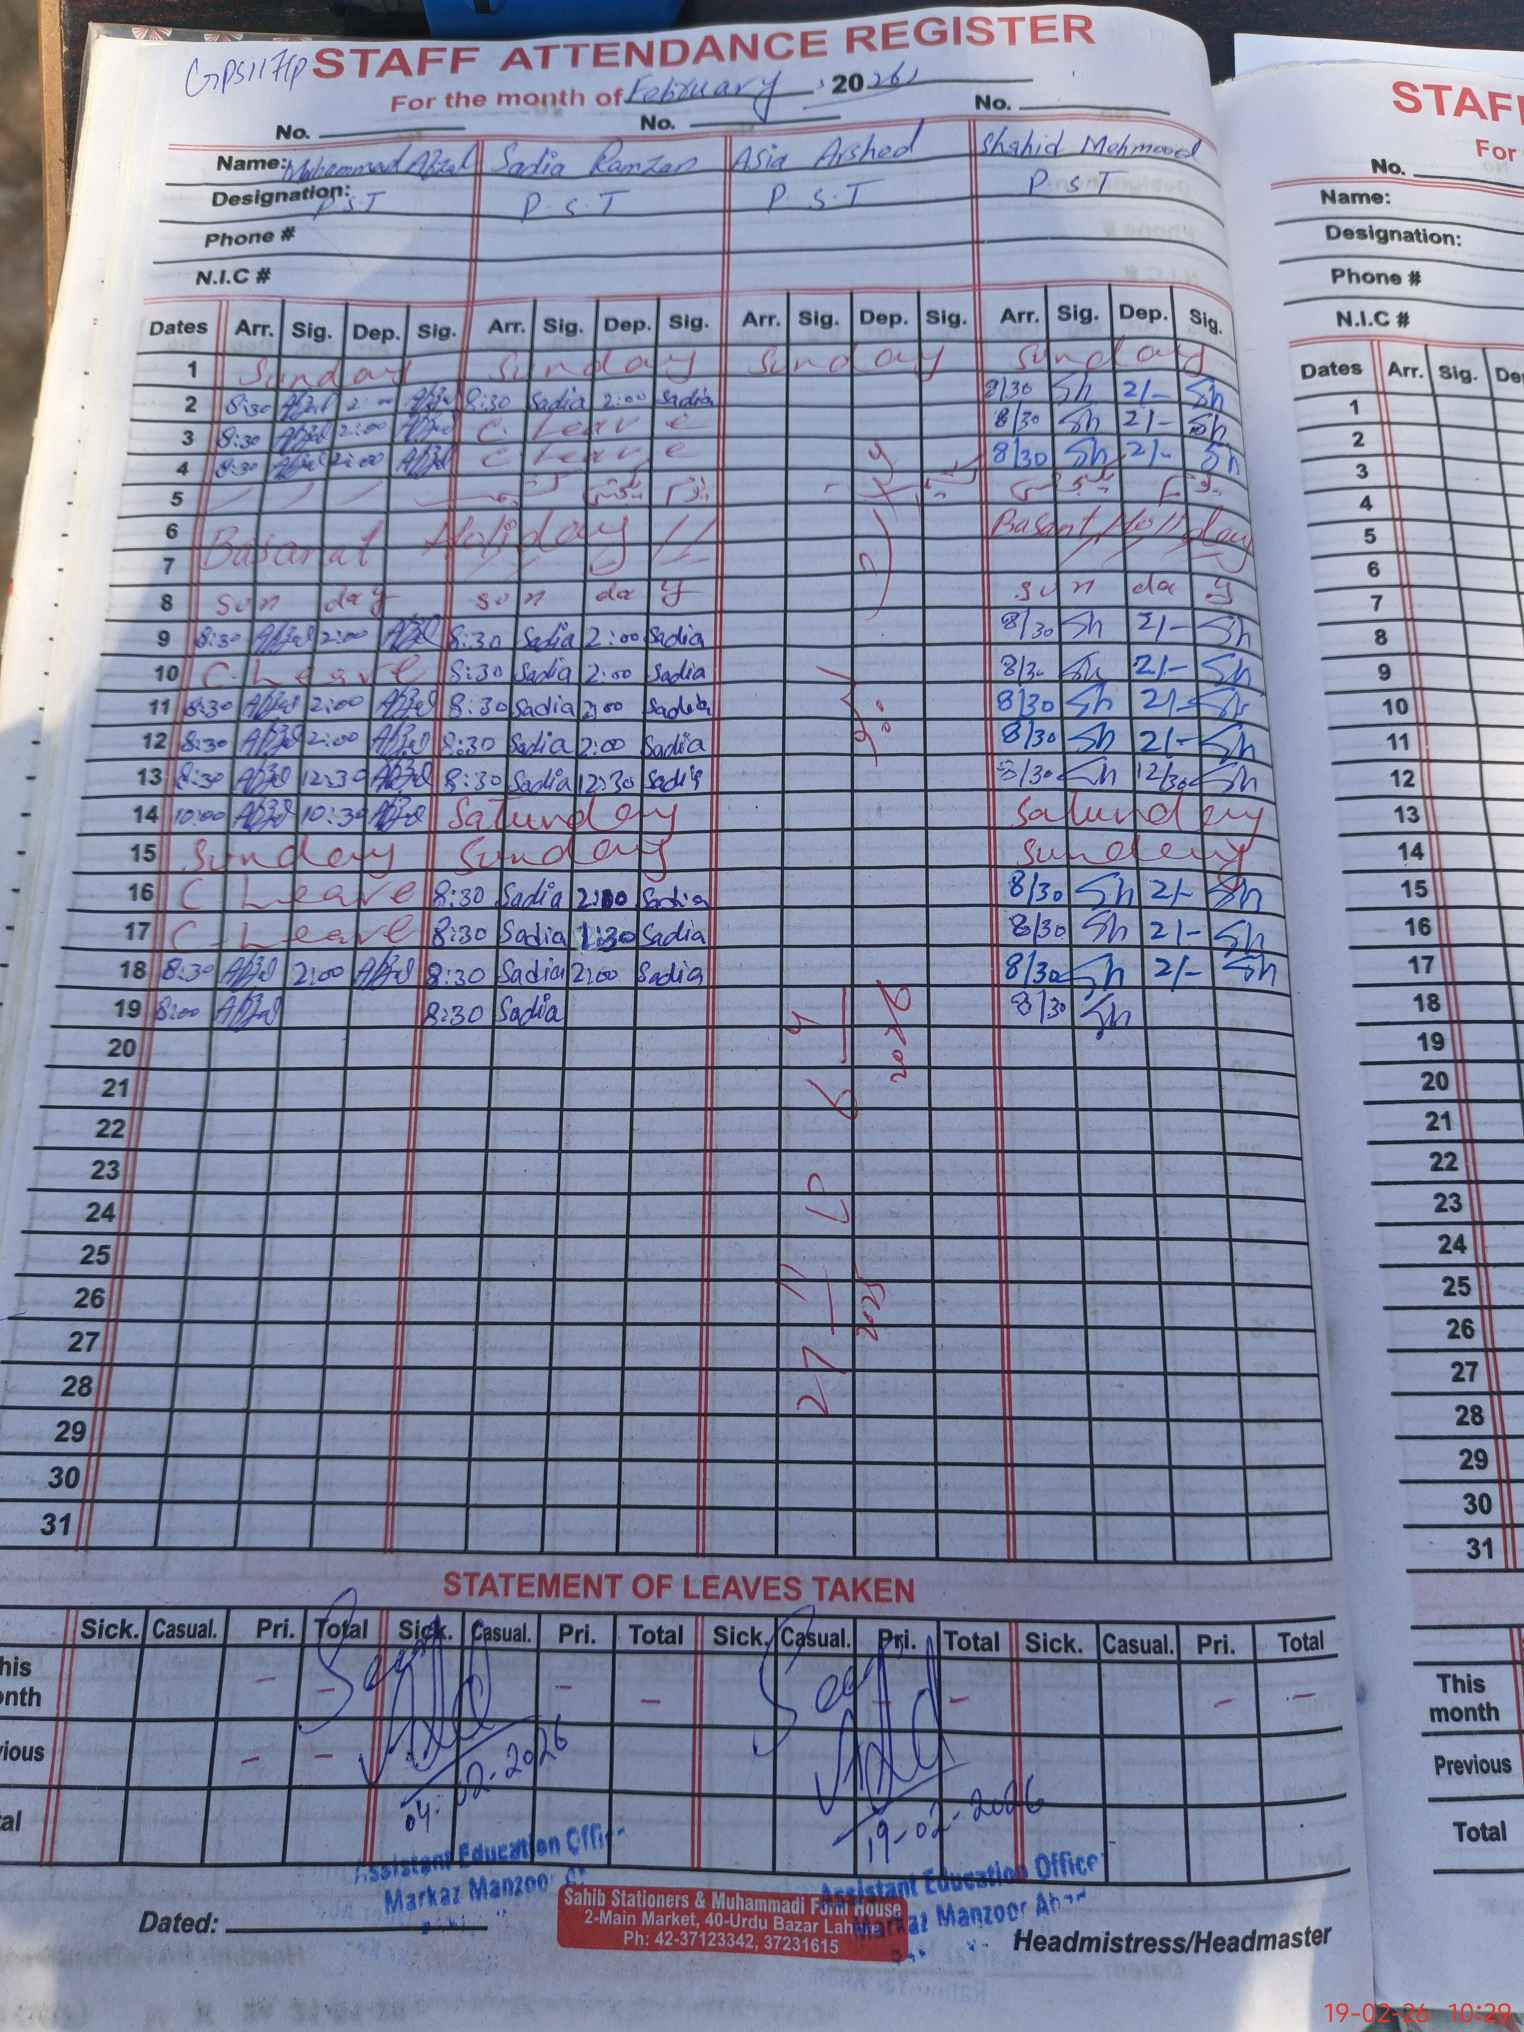 GPS 117/P STAFF ATTENDANCE REGISTER
For the month of February 2026
No. No. No.
Name: Muhammad Afzal Sadia Ramzan Asia Arshed Shahid Mehmood
Designation: P.S.T P.S.T P.S.T P.S.T
Phone #
N.I.C #
Dates Arr. Sig. Dep. Sig. Arr. Sig. Dep. Sig. Arr. Sig. Dep. Sig. Arr. Sig. Dep. Sig.
1 Sunday Sunday Sunday Sunday
2 8:30 Afzal 2:00 Afzal 8:30 Sadia 2:00 Sadia 8/30 Sh 2/- Sh
3 8:30 Afzal 2:00 Afzal C. Leave 8/30 Sh 2/- Sh
4 8:30 Afzal 2:00 Afzal C Leave 8/30 Sh 2/- Sh
5
6 Basanat Holiday // Basant Holiday
7
8 Sun day Sun day Sun day
9 8:30 Afzal 2:00 Afzal 8:30 Sadia 2:00 Sadia 8/30 Sh 2/- Sh
10 C. Leave 8:30 Sadia 2:00 Sadia 8/30 Sh 2/- Sh
11 8:30 Afzal 2:00 Afzal 8:30 Sadia 2:00 Sadia 8/30 Sh 2/- Sh
12 8:30 Afzal 2:00 Afzal 8:30 Sadia 2:00 Sadia 8/30 Sh 2/- Sh
13 8:30 Afzal 12:30 Afzal 8:30 Sadia 12:30 Sadia 8/30 Sh 12/30 Sh
14 10:00 Afzal 10:30 Afzal Saturday Saturday
15 Sunday Sunday Sunday
16 C Leave 8:30 Sadia 2:00 Sadia 8/30 Sh 2/- Sh
17 C. Leave 8:30 Sadia 1:30 Sadia 8/30 Sh 2/- Sh
18 8:30 Afzal 2:00 Afzal 8:30 Sadia 2:00 Sadia 8/30 Sh 2/- Sh
19 8:00 Afzal 8:30 Sadia 8/30 Sh
20
21
22
23
24
25
26
27
28
29
30
31
27 11 2025
2026
STATEMENT OF LEAVES TAKEN
Sick. Casual. Pri. Total Sick. Casual. Pri. Total Sick. Casual. Pri. Total Sick. Casual. Pri. Total
his
onth - - - - - - -
ious - -
al
04-02-2026
19-02-2026
Assistant Education Offi
Markaz Manzoor
Assistant Education Office
Markaz Manzoor Abad
Sahib Stationers & Muhammadi Form House
2-Main Market, 40-Urdu Bazar Lahore
Ph: 42-37123342, 37231615
Dated:
Headmistress/Headmaster
STAF
For
No.
Name:
Designation:
Phone #
N.I.C #
Dates Arr. Sig. De
1
2
3
4
5
6
7
8
9
10
11
12
13
14
15
16
17
18
19
20
21
22
23
24
25
26
27
28
29
30
31
This
month
Previous
Total
19-02-26 10:29